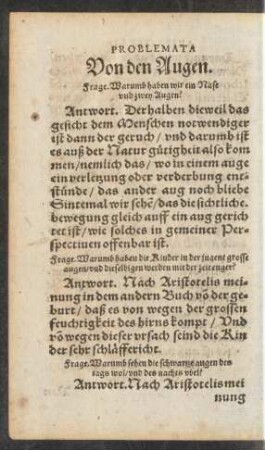 PROBLEMATA
Von den Augen.
Frage. Warumb haben wir ein Näse
vnd zwey Augen?
Antwort. Derhalben dieweil das
gesicht dem Menschen notwendiger
ist dann der geruch/ vnd darumb ist
es auß der Natur gütigkeit also kom
men/nemlich das/ wo in einem auge
ein verletzung oder verderbung ent-
stünde/ das ander aug noch bliebe
Sintemal wir sehē/das die sichtliche.
bewegung gleich auff ein aug gerich
tet ist/ wie solches in gemeiner Per-
spectiuen offenbar ist.
Frage. Warumb haben die Kinder in der jugent grosse
augen/vnd dieselbigen werden mit der zeit enger?
Antwort. Nach Aristotelis mei-
nung in dem andern Buch vō der ge-
burt/ daß es von wegen der grossen
feuchtigkeit des hirns kompt/ Vnd
vō wegen dieser vrsach seind die Kin
der sehr schläffericht.
Frage. Warumb sehen die schwartze augen des
tags wol/ vnd des nachts vbel?
Antwort. Nach Aristotelis mei
nung